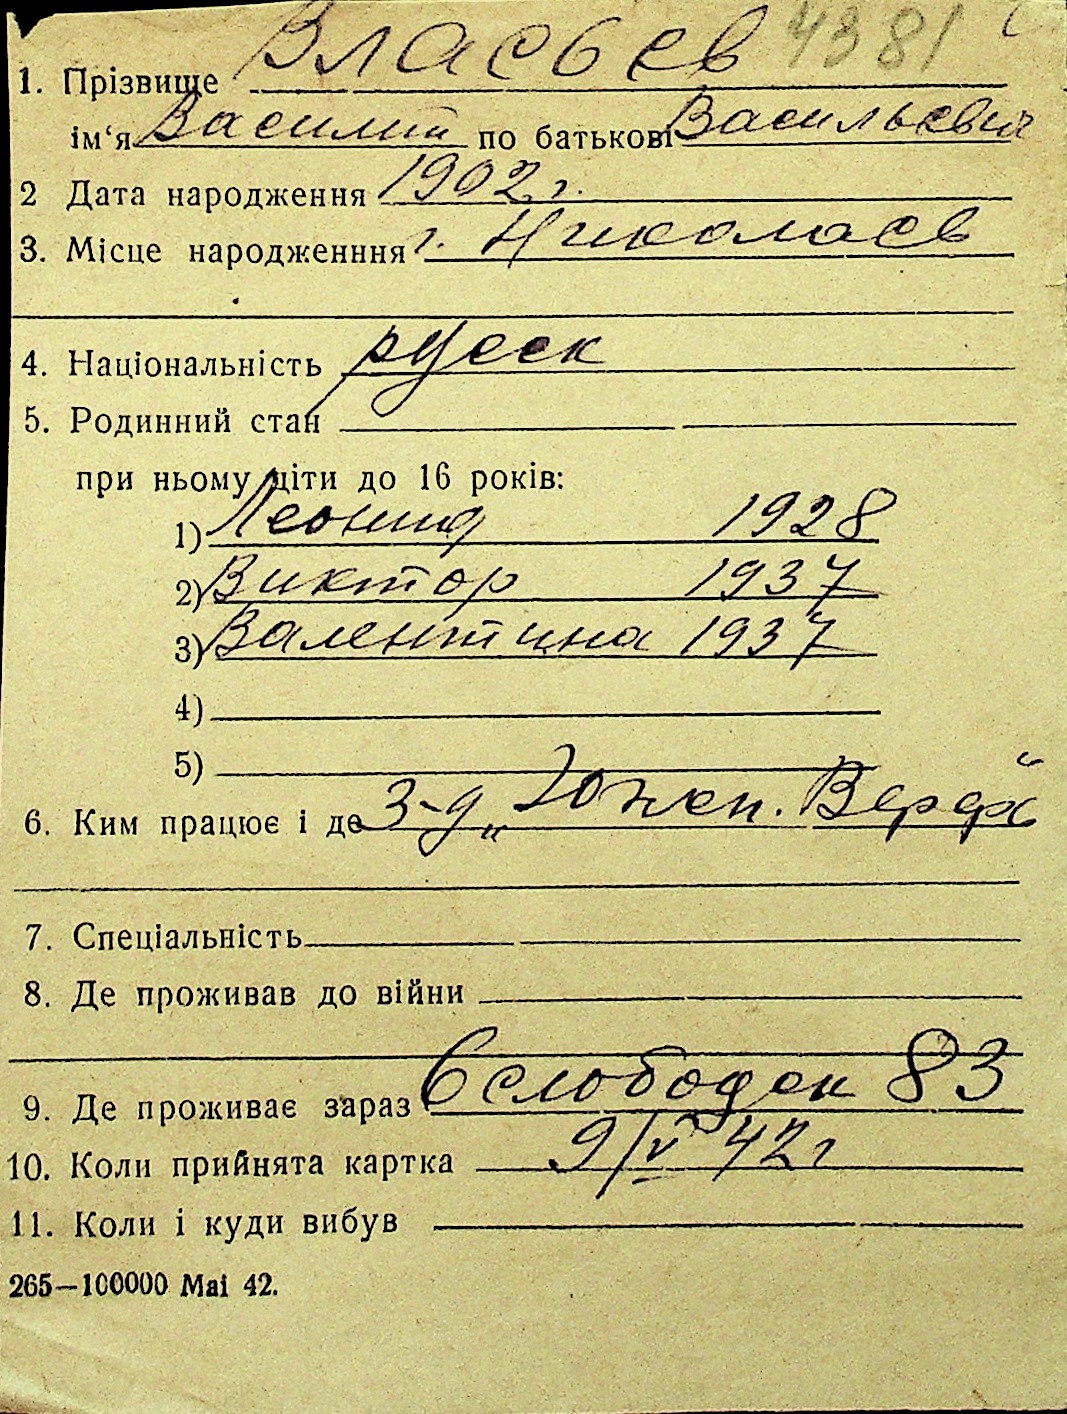 4381
1. Прізвище Власьев
ім‘я Василий по батькові Васильевич
2 Дата народження 1902 г.
3. Місце народженння г. Николаев
4. Національність русск
5. Родинний стан
при ньому діти до 16 років:
1) Леонид 1928
2) Виктор 1937
3) Валентина 1937
4)
5)
6. Ким працює і де З-д „Южн. Верфь“
7. Спеціальність
8. Де проживав до війни
9. Де проживає зараз 6 слободск 83
10. Коли прийнята картка 9/V 42 г
11. Коли і куди вибув
265—100000 Mai 42.